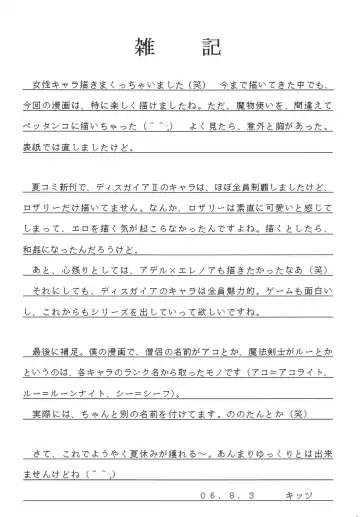 雑　記
　女性キャラ描きまくっちゃいました（笑）　今まで描いてきた中でも、
今回の漫画は、特に楽しく描けましたね。ただ、魔物使いを、間違えて
ペッタンコに描いちゃった（＾＾；）　よく見たら、意外と胸があった。
表紙では直しましたけど。
　夏コミ新刊で、ディスガイアⅡのキャラは、ほぼ全員制覇しましたけど、
ロザリーだけ描いてません。なんか、ロザリーは素直に可愛いと感じて
しまって、エロを描く気が起こらなかったんですよね。描くとしたら、
和姦になったんだろうけど。
　あと、心残りとしては、アデル×エレノアも描きたかったなあ（笑）
　それにしても、ディスガイアのキャラは全員魅力的。ゲームも面白い
し、これからもシリーズを出していって欲しいですね。
　最後に補足。僕の漫画で、僧侶の名前がアコとか、魔法剣士がルーとか
というのは、各キャラのランク名から取ったモノです（アコ＝アコライト、
ルー＝ルーンナイト、シー＝シーフ）。
　実際には、ちゃんと別の名前を付けてます。ののたんとか（笑）
　さて、これでようやく夏休みが獲れる～。あんまりゆっくりとは出来
ませんけどね（＾＾；）
０６．８．３　　キッツ